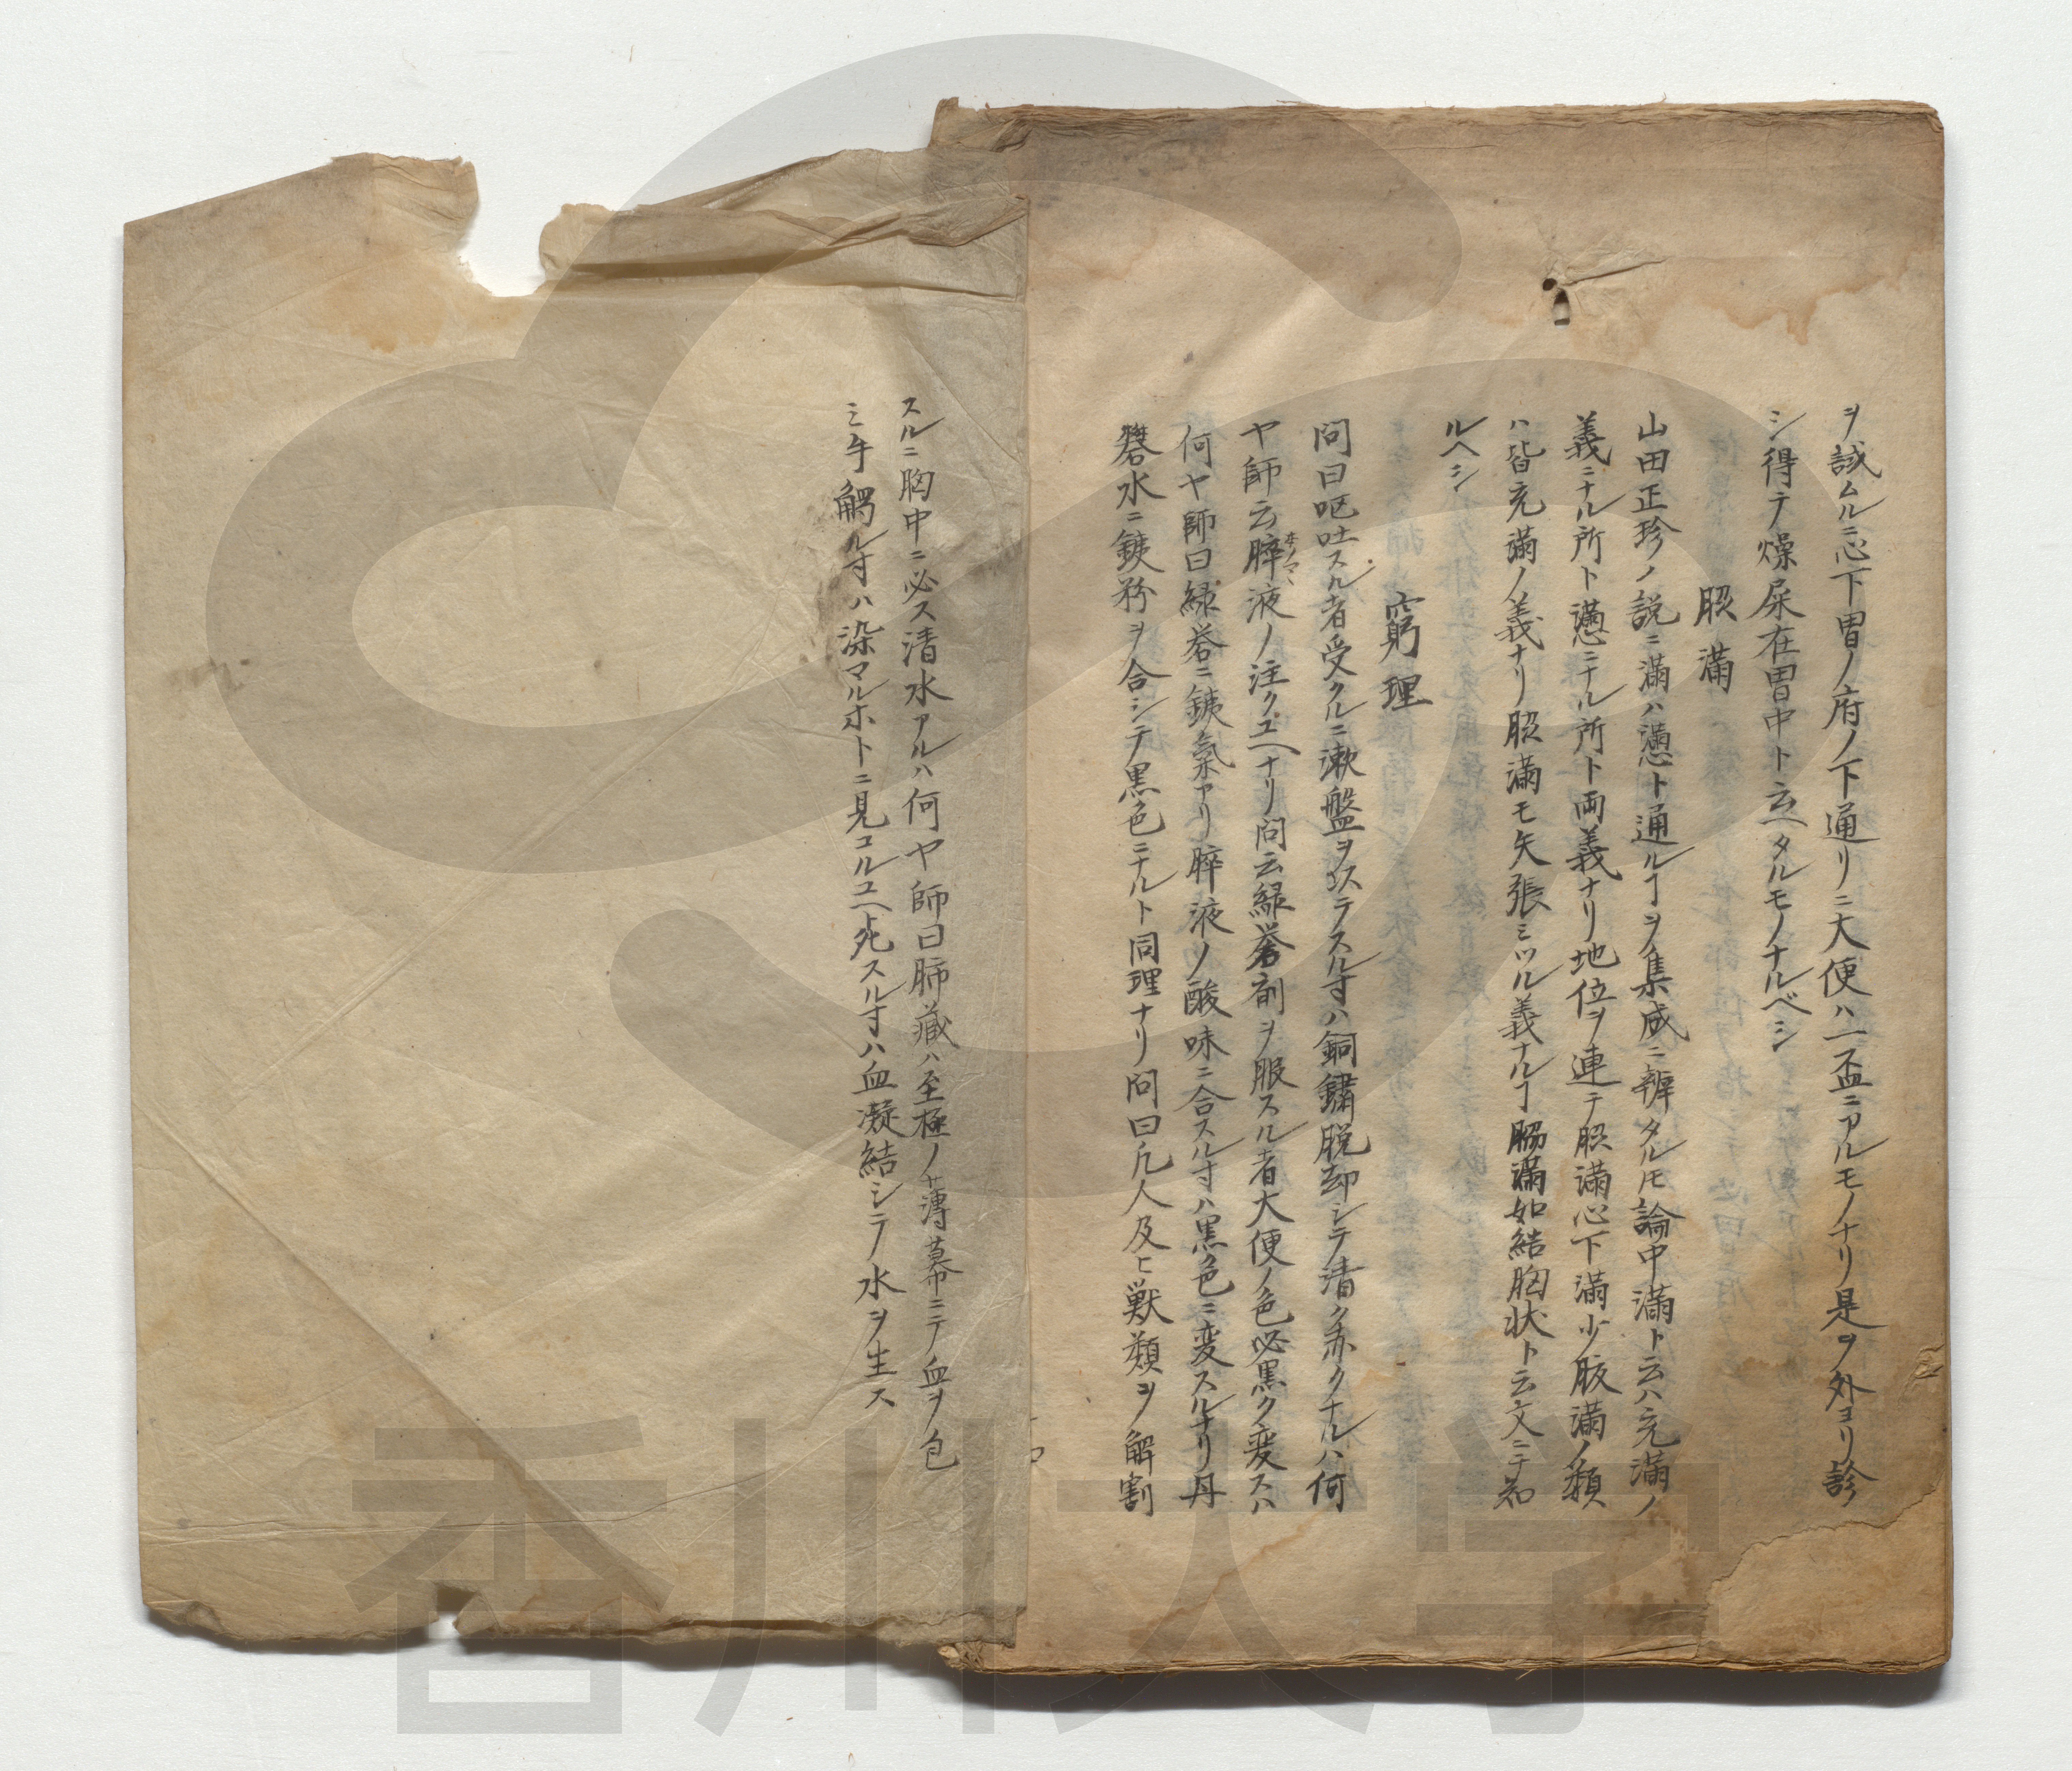 ヲ誠ムルニ心下胃ノ府ノ下通リニ大便ハ一盃ニアルモノナリ是ヲ外ヨリ診
シ得テ燥屎在胃中ト云ヘタルモノナルベシ
脹満
山田正珍ノ説ニ満ハ懣ト通ルヿヲ集成ニ辨タルモ論中満ト云ハ充満ノ
義ニナル所ト懣ニナル所ト両義ナリ地位ヲ連テ脹満心下満少腹満ノ類
ハ皆充満ノ義ナリ脹満モ矢張ミツル義ナルヿ脇満如結胸状ト云文ニテ知
ルヘシ
窮理
問曰呕吐スル者受クルニ漱盤ヲステスル寸ハ銅鏽脱却シテ清ク赤クナルハ何
ヤ師云膵液ノ注クユヘナリ問云緑礬剤ヲ服スル者大便ノ色必黒ク変スハ
本ノマヽ
何ヤ師曰緑礬ニ鉄氣アリ膵液ノ酸味ニ合スル寸ハ黒色ニ変スルナリ丹
礬水ニ鉄粉ヲ合シテ黒色ニナルト同理ナリ問曰凡人及ヒ獣類ヲ解割
スルニ胸中ニ必ス清水アルハ何ヤ師曰肺蔵ハ至極ノ薄幕ニテ血ヲ包
ミ手觸ル寸ハ染マルホトニ見コルユヘ死スル寸ハ血凝結シテ水ヲ生ス
香川大学